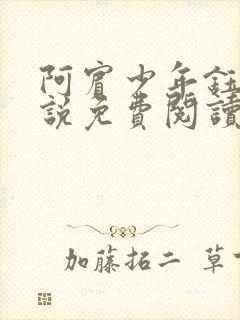 阿賓少年鈺
説免費閱讀
加藤拓二 草